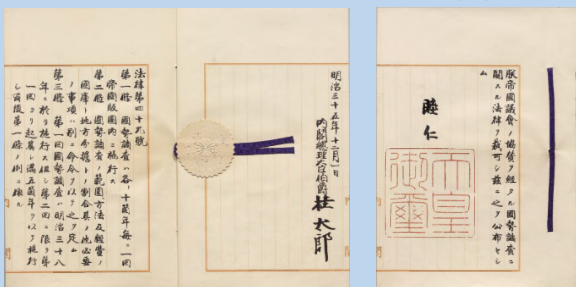 朕帝國議會ノ協賛ヲ經タル國勢調査ニ
關スル法律ヲ裁可シ茲ニ之ヲ公布セシ
ム
睦仁
天皇
御璽
明治三十五年十二月一日
内閣總理大臣伯爵桂太郎
法律第四十九號
第一條 國勢調査ハ各十箇年毎ニ一囘
帝國版圖内ニ施行ス
第二條 國勢調査ノ範圍方法及經費ノ
國庫ト地方分擔トノ割合其ノ他必要
ノ事項ハ別ニ命令ヲ以テ之ヲ定ム
第三條 第一囘國勢調査ハ明治三十八
年ニ於テ施行ス但シ第二囘ニ限リ第
一囘ヨリ起算シ滿五箇年ヲ以テ施行
シ爾後第一條ノ例ニ據ル